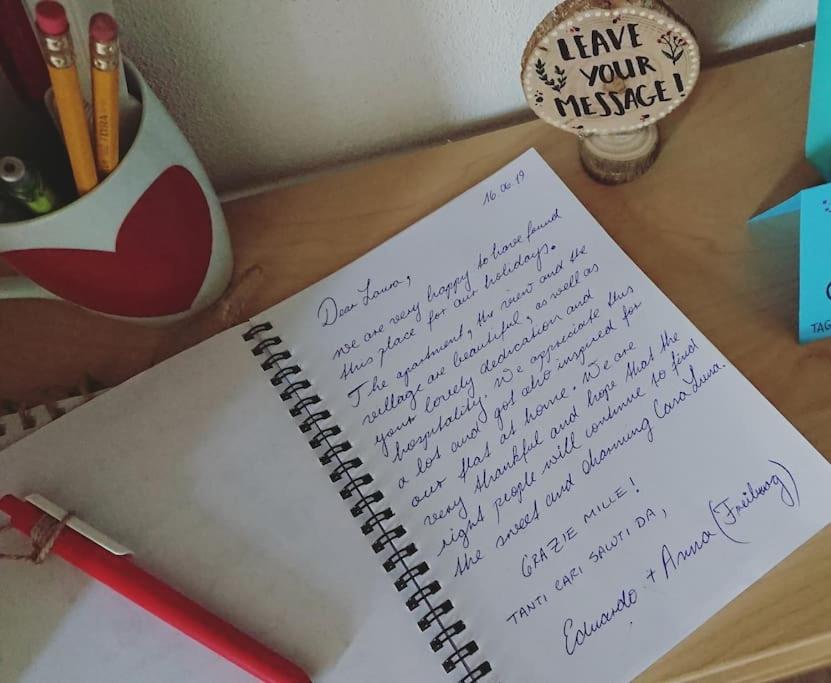 LEAVE
YOUR
MESSAGE!
16.06.19
Dear Laura,
we are very happy to have found
this place for our holidays.
The apartment, the view and the
village are beautiful, as well as
your lovely dedication and
hospitality. We appreciate this
a lot and got also inspired for
our flat at home. We are
very thankful and hope that the
right people will continue to find
the sweet and charming Casa Luna.
GRAZIE MILLE!
TANTI CARI SALUTI DA,
Eduardo + Anna (Freiburg)
TAG